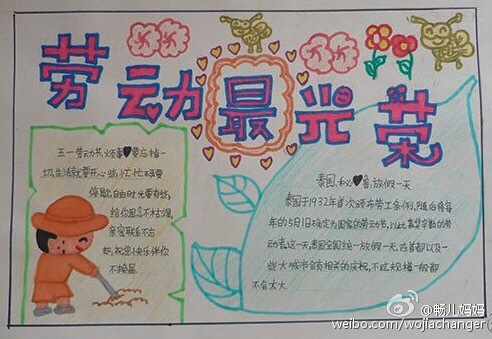 劳动最光荣
五一劳动节,烦事♥要忘掉一
切,生活就要开心些,忙忙碌碌要
停歇,自由时光要有些,
给你的念不太深
亲密联系不忘
切,祝您快乐伴你
不换届.
泰国,秘♥鲁,放假一天
泰国于1932年首次颁布劳工条例,随后将每
年的5月1日确定为国家的劳动节,以此嘉奖辛勤的劳
动者.这一天,泰国全国统一放假一天,在首都以及一
些大城市会有相关的庆祝,不过规模一般都
不会太大.
@畅儿妈妈
weibo.com/wojiachanger